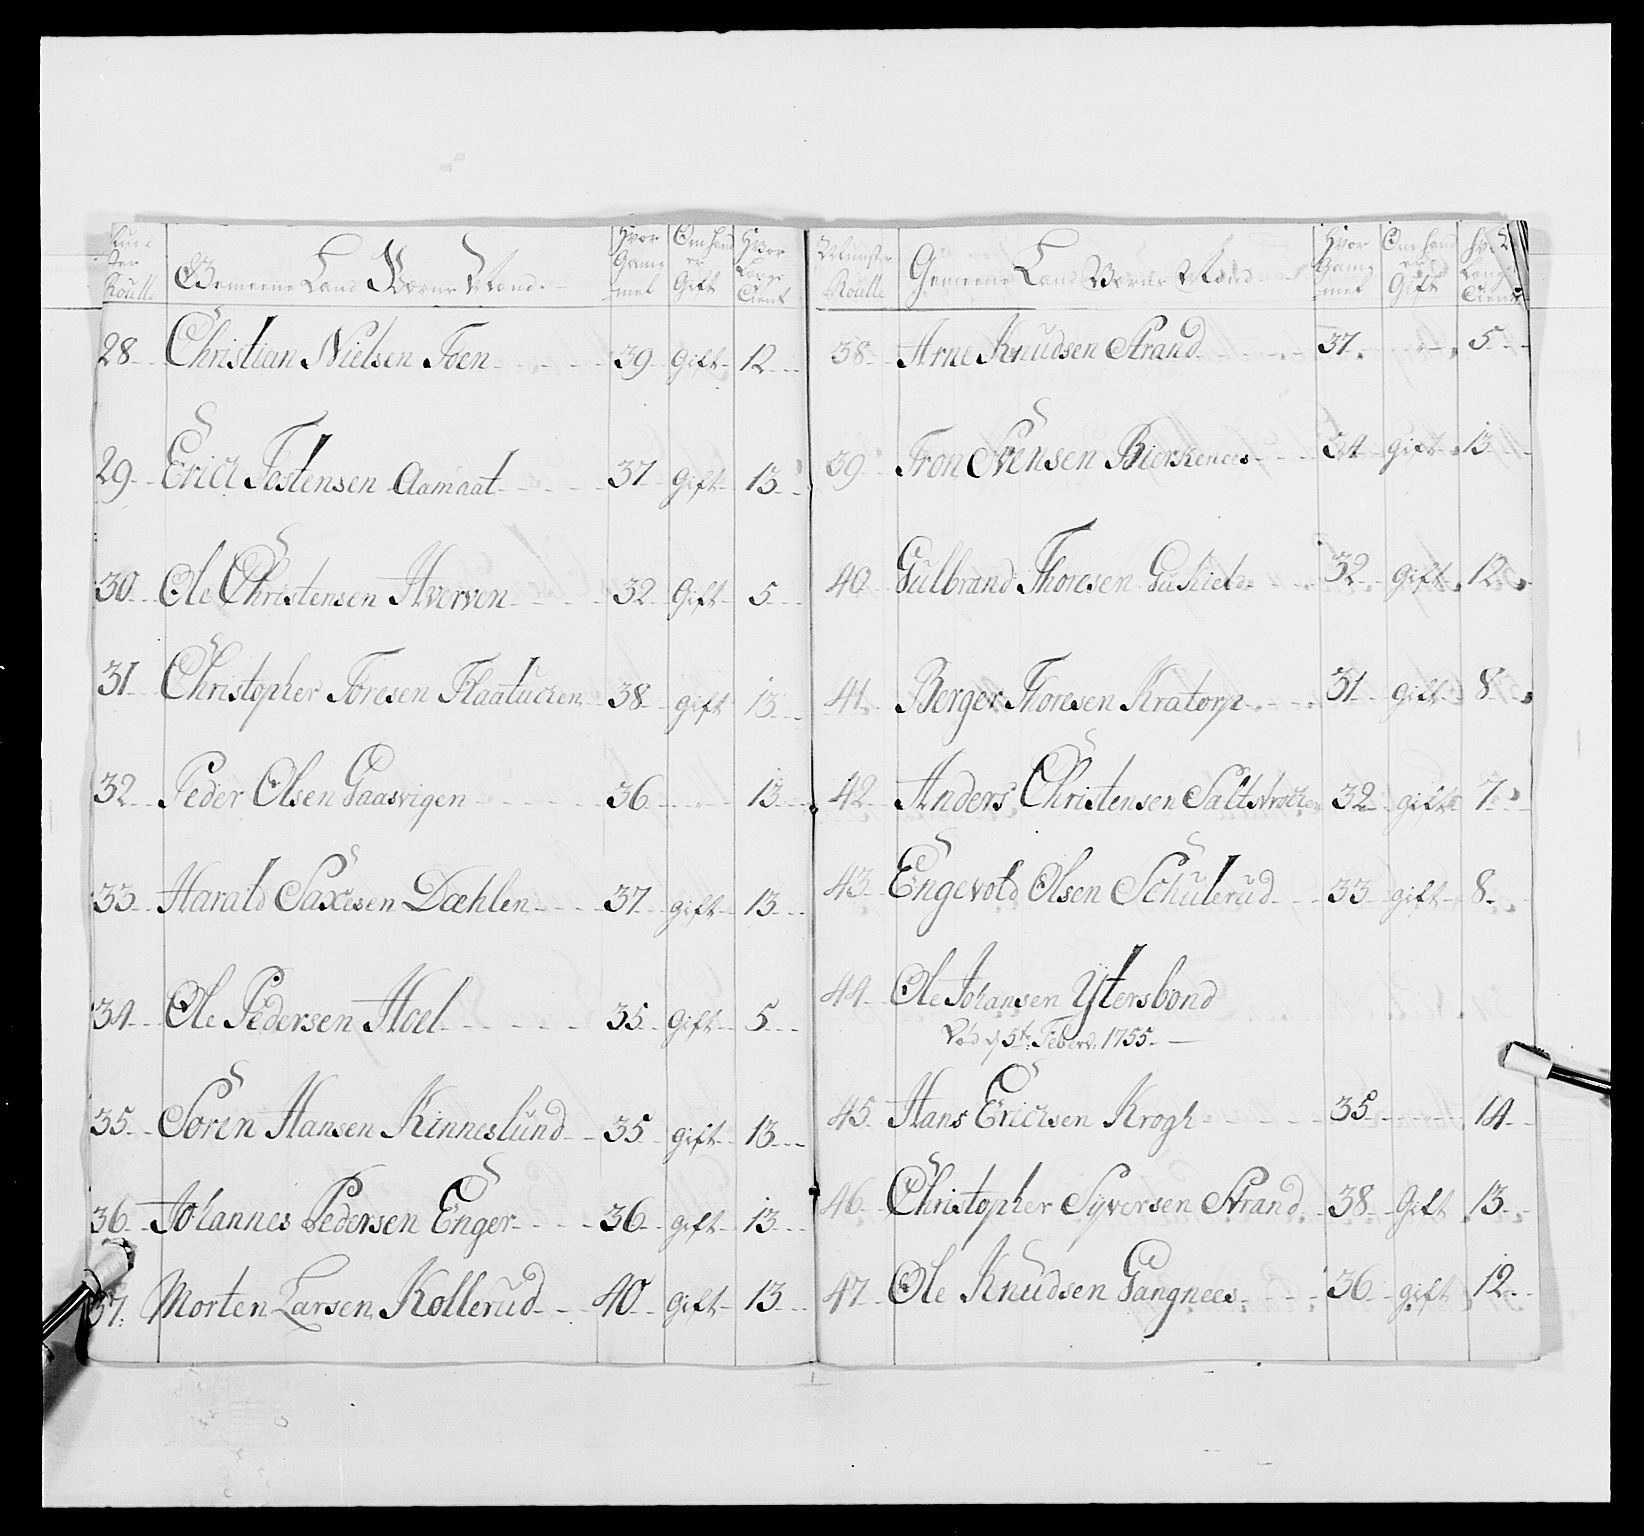 Mun-
ster
Roulle
Gemeene Land Værns Mænd.
Hvor
Gam-
mel
Om hand
er
Gift
Hvor
Længe
Tient
28 Christian Nielsen Foen 39 Gift 12
29 Erick Testensen Aamaat 37 Gift 13
30 Ole Christensen Hverven 32 Gift 5
31 Christopher Toresen Flaatucken 38 gift 13
32 Peder Olsen Gaasvigen 36 13
33 Harald Saxesen Dæhlen 37 gift 13
34 Ole Pedersen Hoel 35 Gift 5
35 Søren Hansen Kinneslund 35 gift 13
36 Johannes Pedersen Enger 36 gift 13
37 Morten Larsen Kollerud 40 gift 13
Munster
Roulle
Gemeene Land Værns Mænd
Hvor
Gam-
mel
Om hand
er
Gift
Læng
Tient
38 Arne Knudsen Strand 37 5
39 Tron Svensen Bierkenees 34 gift 13
40 Gulbrand Thoresen 32 Gift 12
41 Berger Thoresen Kratorp 31 gift 8
42 Anders Christensen 32 gift 7
43 Engevold Olsen Schulerud 33 gift 8
44 Ole Johansen Ytersbond
Død d 5te Feberv: 1755.
45 Hans Ericksen Krogh 35 14
46 Christopher Syversen Strand 38 Gift 13
47 Ole Knudsen Gangnees 36 gift 12